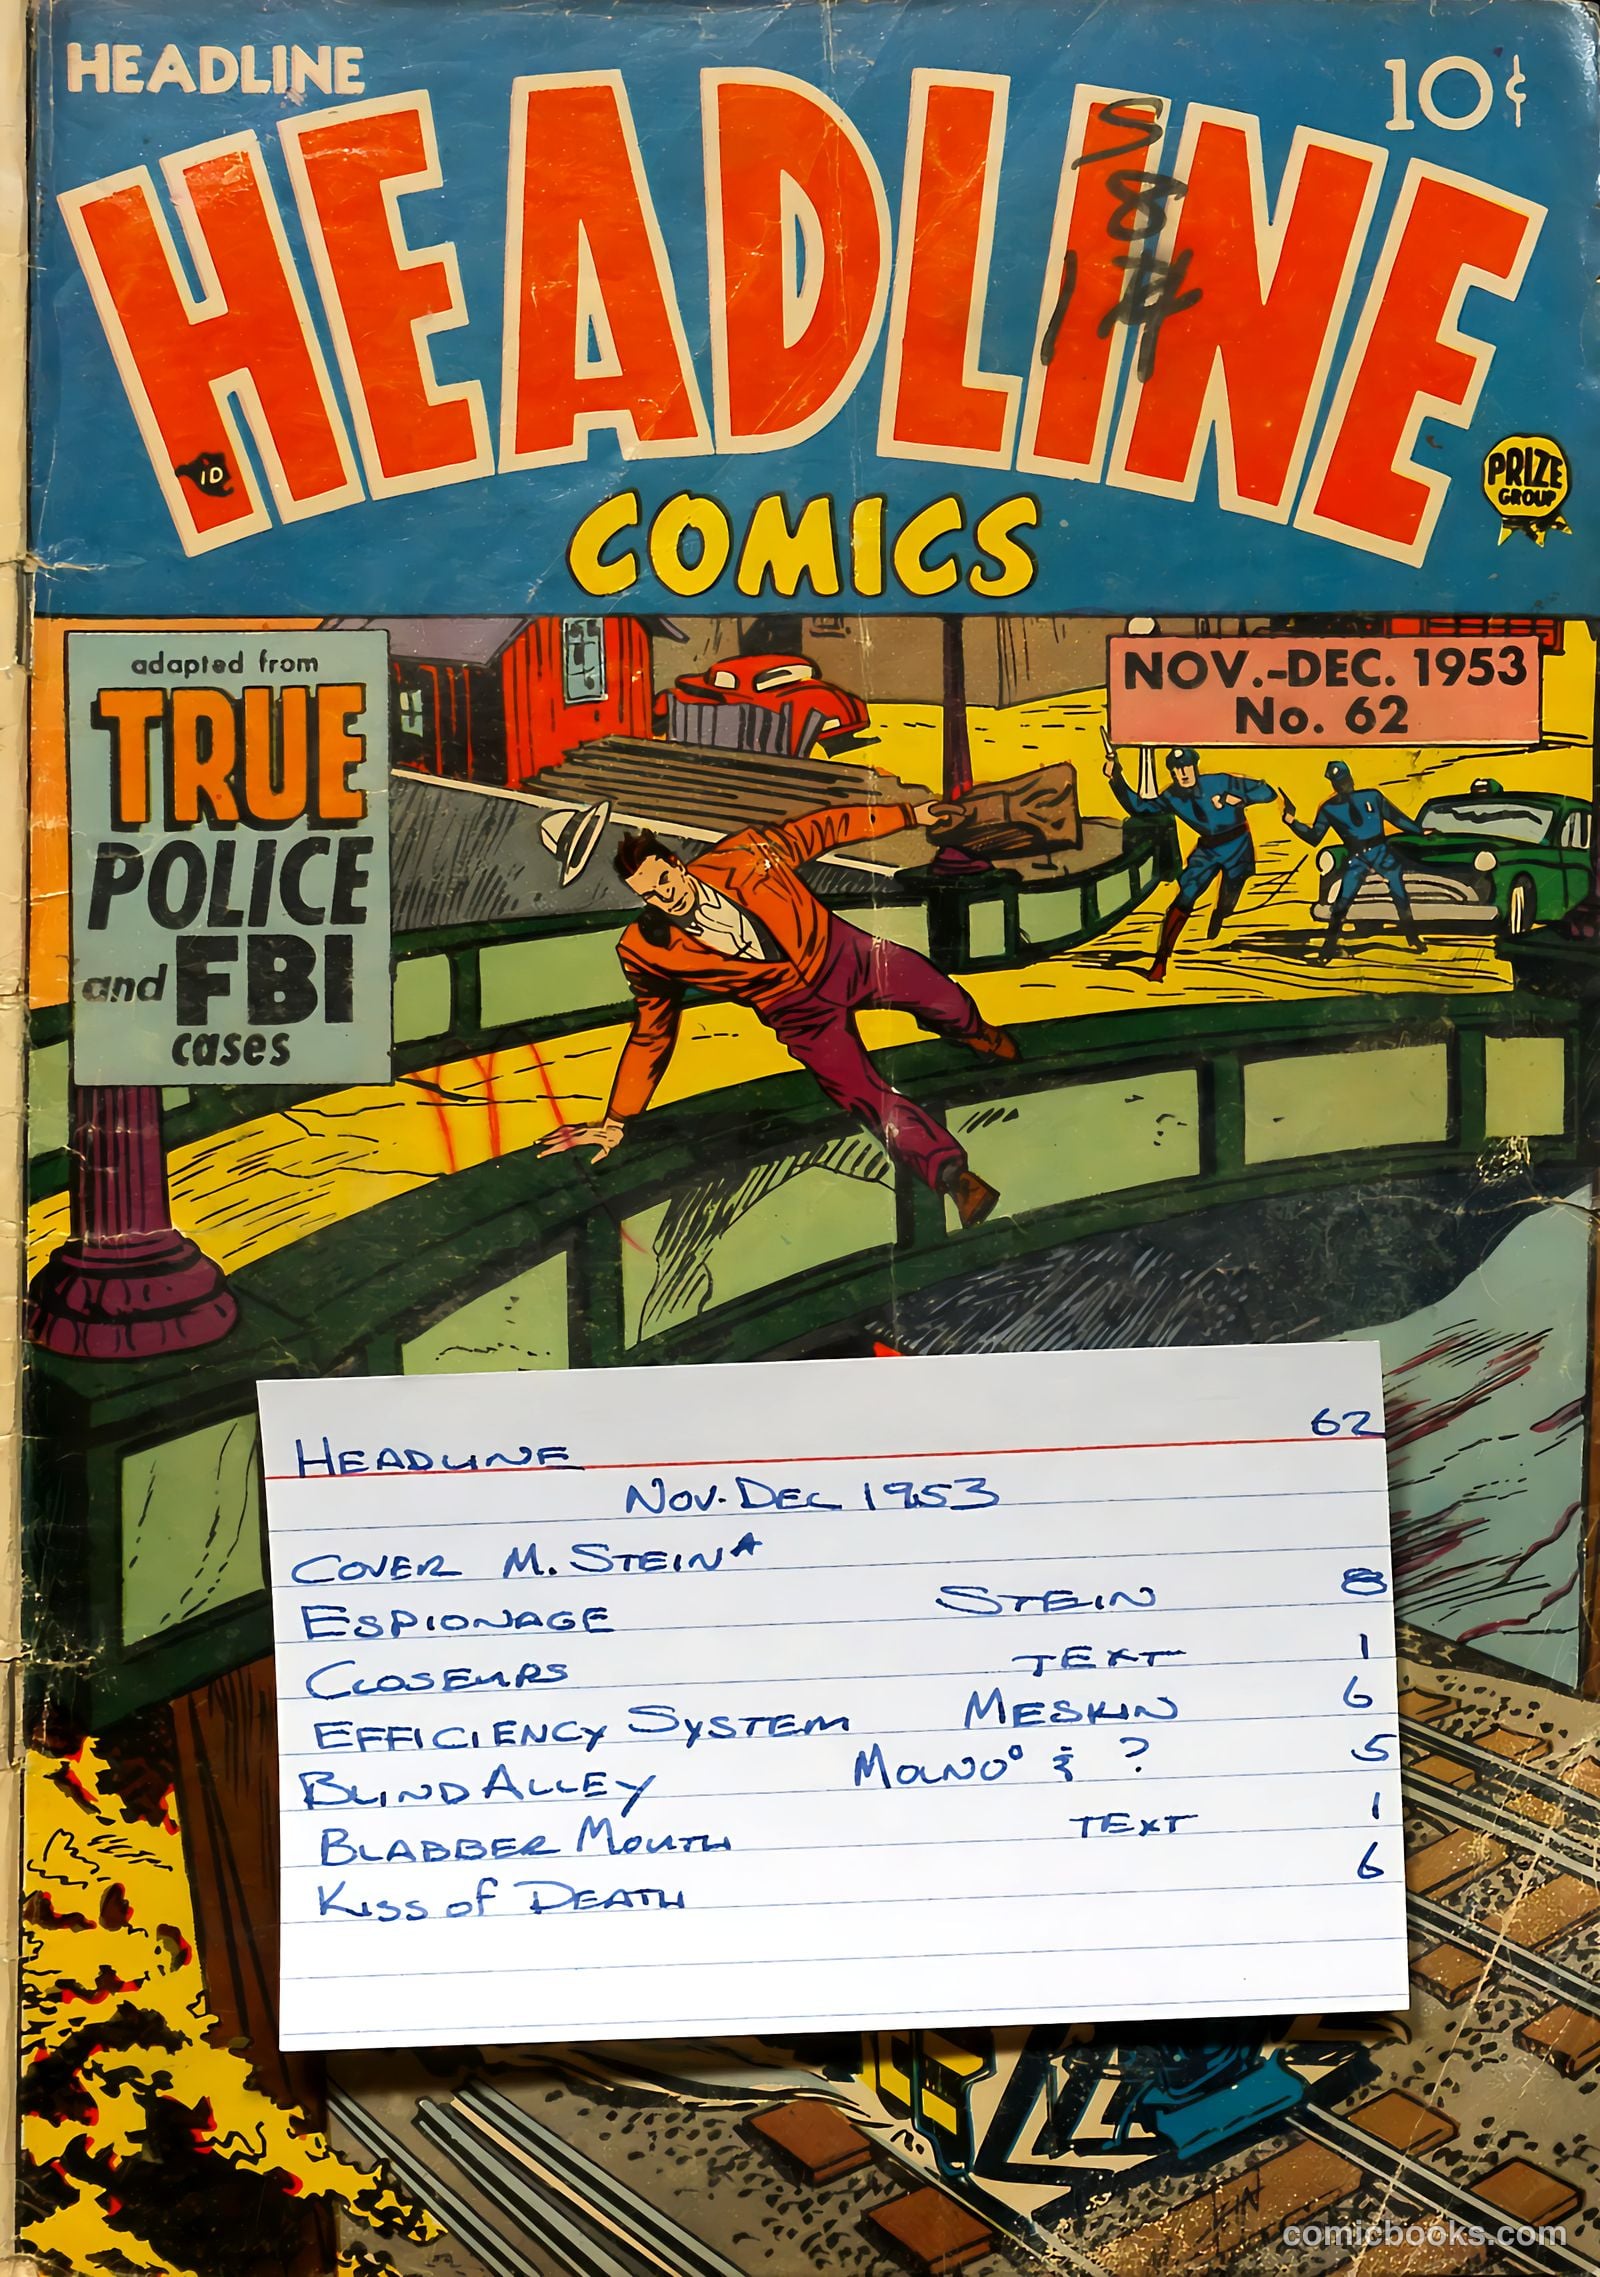 HEADLINE
10¢
HEADLINE
S
8
14
ID
PRIZE
GROUP
COMICS
adapted from
TRUE
POLICE
and FBI
cases
NOV.-DEC. 1953
No. 62
HEADLINE 62
NOV-DEC 1953
COVER M. STEIN*
ESPIONAGE STEIN 8
CLOSEUPS TEXT 1
EFFICIENCY SYSTEM MESKIN 6
BLIND ALLEY & ? 5
BLABBER MOUTH TEXT 1
KISS OF DEATH 6
comicbooks.com